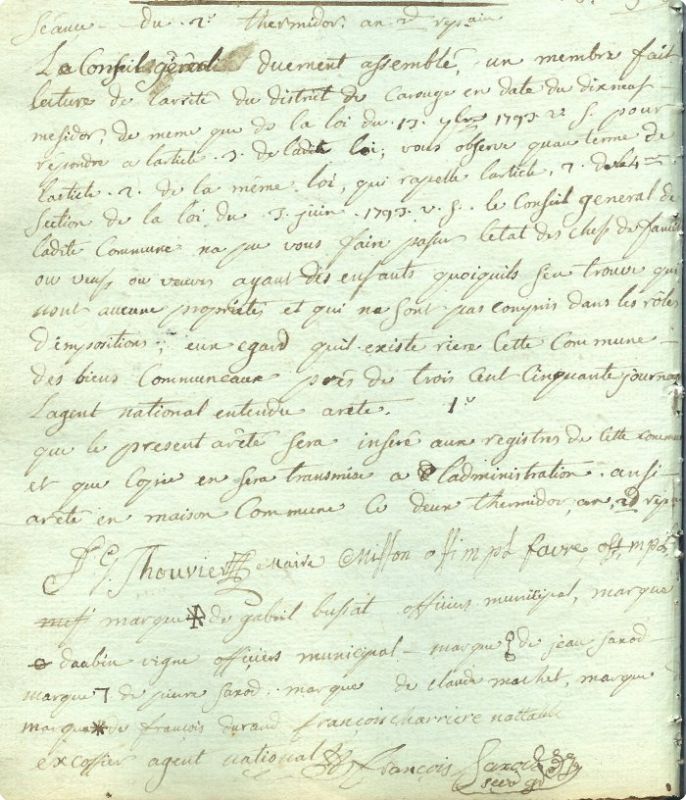 Séance du 2e thermidor an 2d repain
Le Conseil général duement assemblé, un membre fait
lecture de larrété du district de Carouge en date du dixneuf
mesidor, de meme que de la loi du 13. 7bre 1793 v. s. pour
repondre a larticle 3. de ladite loi; vous observe quau terme de
larticle 2. de la même loi, qui rapelle larticle 7. de la 4me
Section de la loi du 3. juin 1793. v. s. le Conseil general de
ladite Commune na pu vous faire passer letat des chefs de famille
ou veufs ou veuves ayant des enfants quoiquils sen trouve qui
nont aucune propriétés et qui ne sont pas compris dans les rôles
d'impositions; eux egard quil existe riere cette Commune
des biens Communeaux près de trois Cent Cinquante journaux
Lagent national entendu arete. 1º
que le present arêté sera inséré aux registres de cette commune
et que Copie en sera transmise a ladministration. ansi
arêté en maison Commune ce deux thermidor, an, 2d repu
Thouvier maire Miffon off mpl favre, off, mpl,
marque de gabriel bussat officiers municipal, marque
daubin vigne officiers municipal marque de jean saxod
marque de pierre saxod. marque de claude machet, marque
marque de françois durand françois charriere nottable
excoffier agent national françois Saxod
secre gr